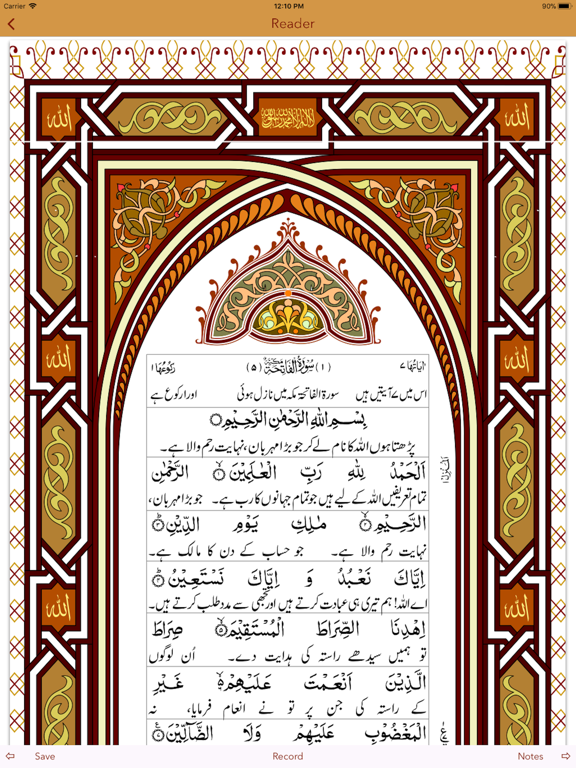 Carrier 12:10 PM 90%
Reader
الله لا اله الا الله محمد رسول الله الله
الله الله
الله الله
اٰیاتُہَا ۷ (۱) سُوْرَۃُ الْفَاتِحَۃِ مَکِّیَّۃٌ (۵) رُکُوْعُہَا ۱
اس میں ۷ آیتیں ہیں سورۃ الفاتحۃ مکہ میں نازل ہوئی اور ا رکوع ہے
بِسْمِ اللّٰهِ الرَّحْمٰنِ الرَّحِیْمِ
پڑھتا ہوں اللہ کا نام لے کر جو بڑا مہربان، نہایت رحم والا ہے۔
اَلْحَمْدُ لِلّٰهِ رَبِّ الْعٰلَمِیْنَ ۙ﴿۱﴾ الرَّحْمٰنِ
تمام تعریفیں اللہ کے لیے ہیں جو تمام جہانوں کا رب ہے۔ جو بڑا مہربان،
الرَّحِیْمِ ۙ﴿۲﴾ مٰلِكِ یَوْمِ الدِّیْنِ ؕ﴿۳﴾
نہایت رحم والا ہے۔ جو حساب کے دن کا مالک ہے۔
اِیَّاكَ نَعْبُدُ وَ اِیَّاكَ نَسْتَعِیْنُ ؕ﴿۴﴾
اے اللہ! ہم تیری ہی عبادت کرتے ہیں اور تجھی سے مدد طلب کرتے ہیں۔
اِهْدِنَا الصِّرَاطَ الْمُسْتَقِیْمَ ۙ﴿۵﴾ صِرَاطَ
تو ہمیں سیدھے راستہ کی ہدایت دے۔ اُن لوگوں
الَّذِیْنَ اَنْعَمْتَ عَلَیْهِمْ ۙ﴿۶﴾ غَیْرِ
کے راستہ کی جن پر تو نے انعام فرمایا، نہ
الْمَغْضُوْبِ عَلَیْهِمْ وَلَا الضَّآلِّیْنَ ﴿۷﴾
Save Record Notes